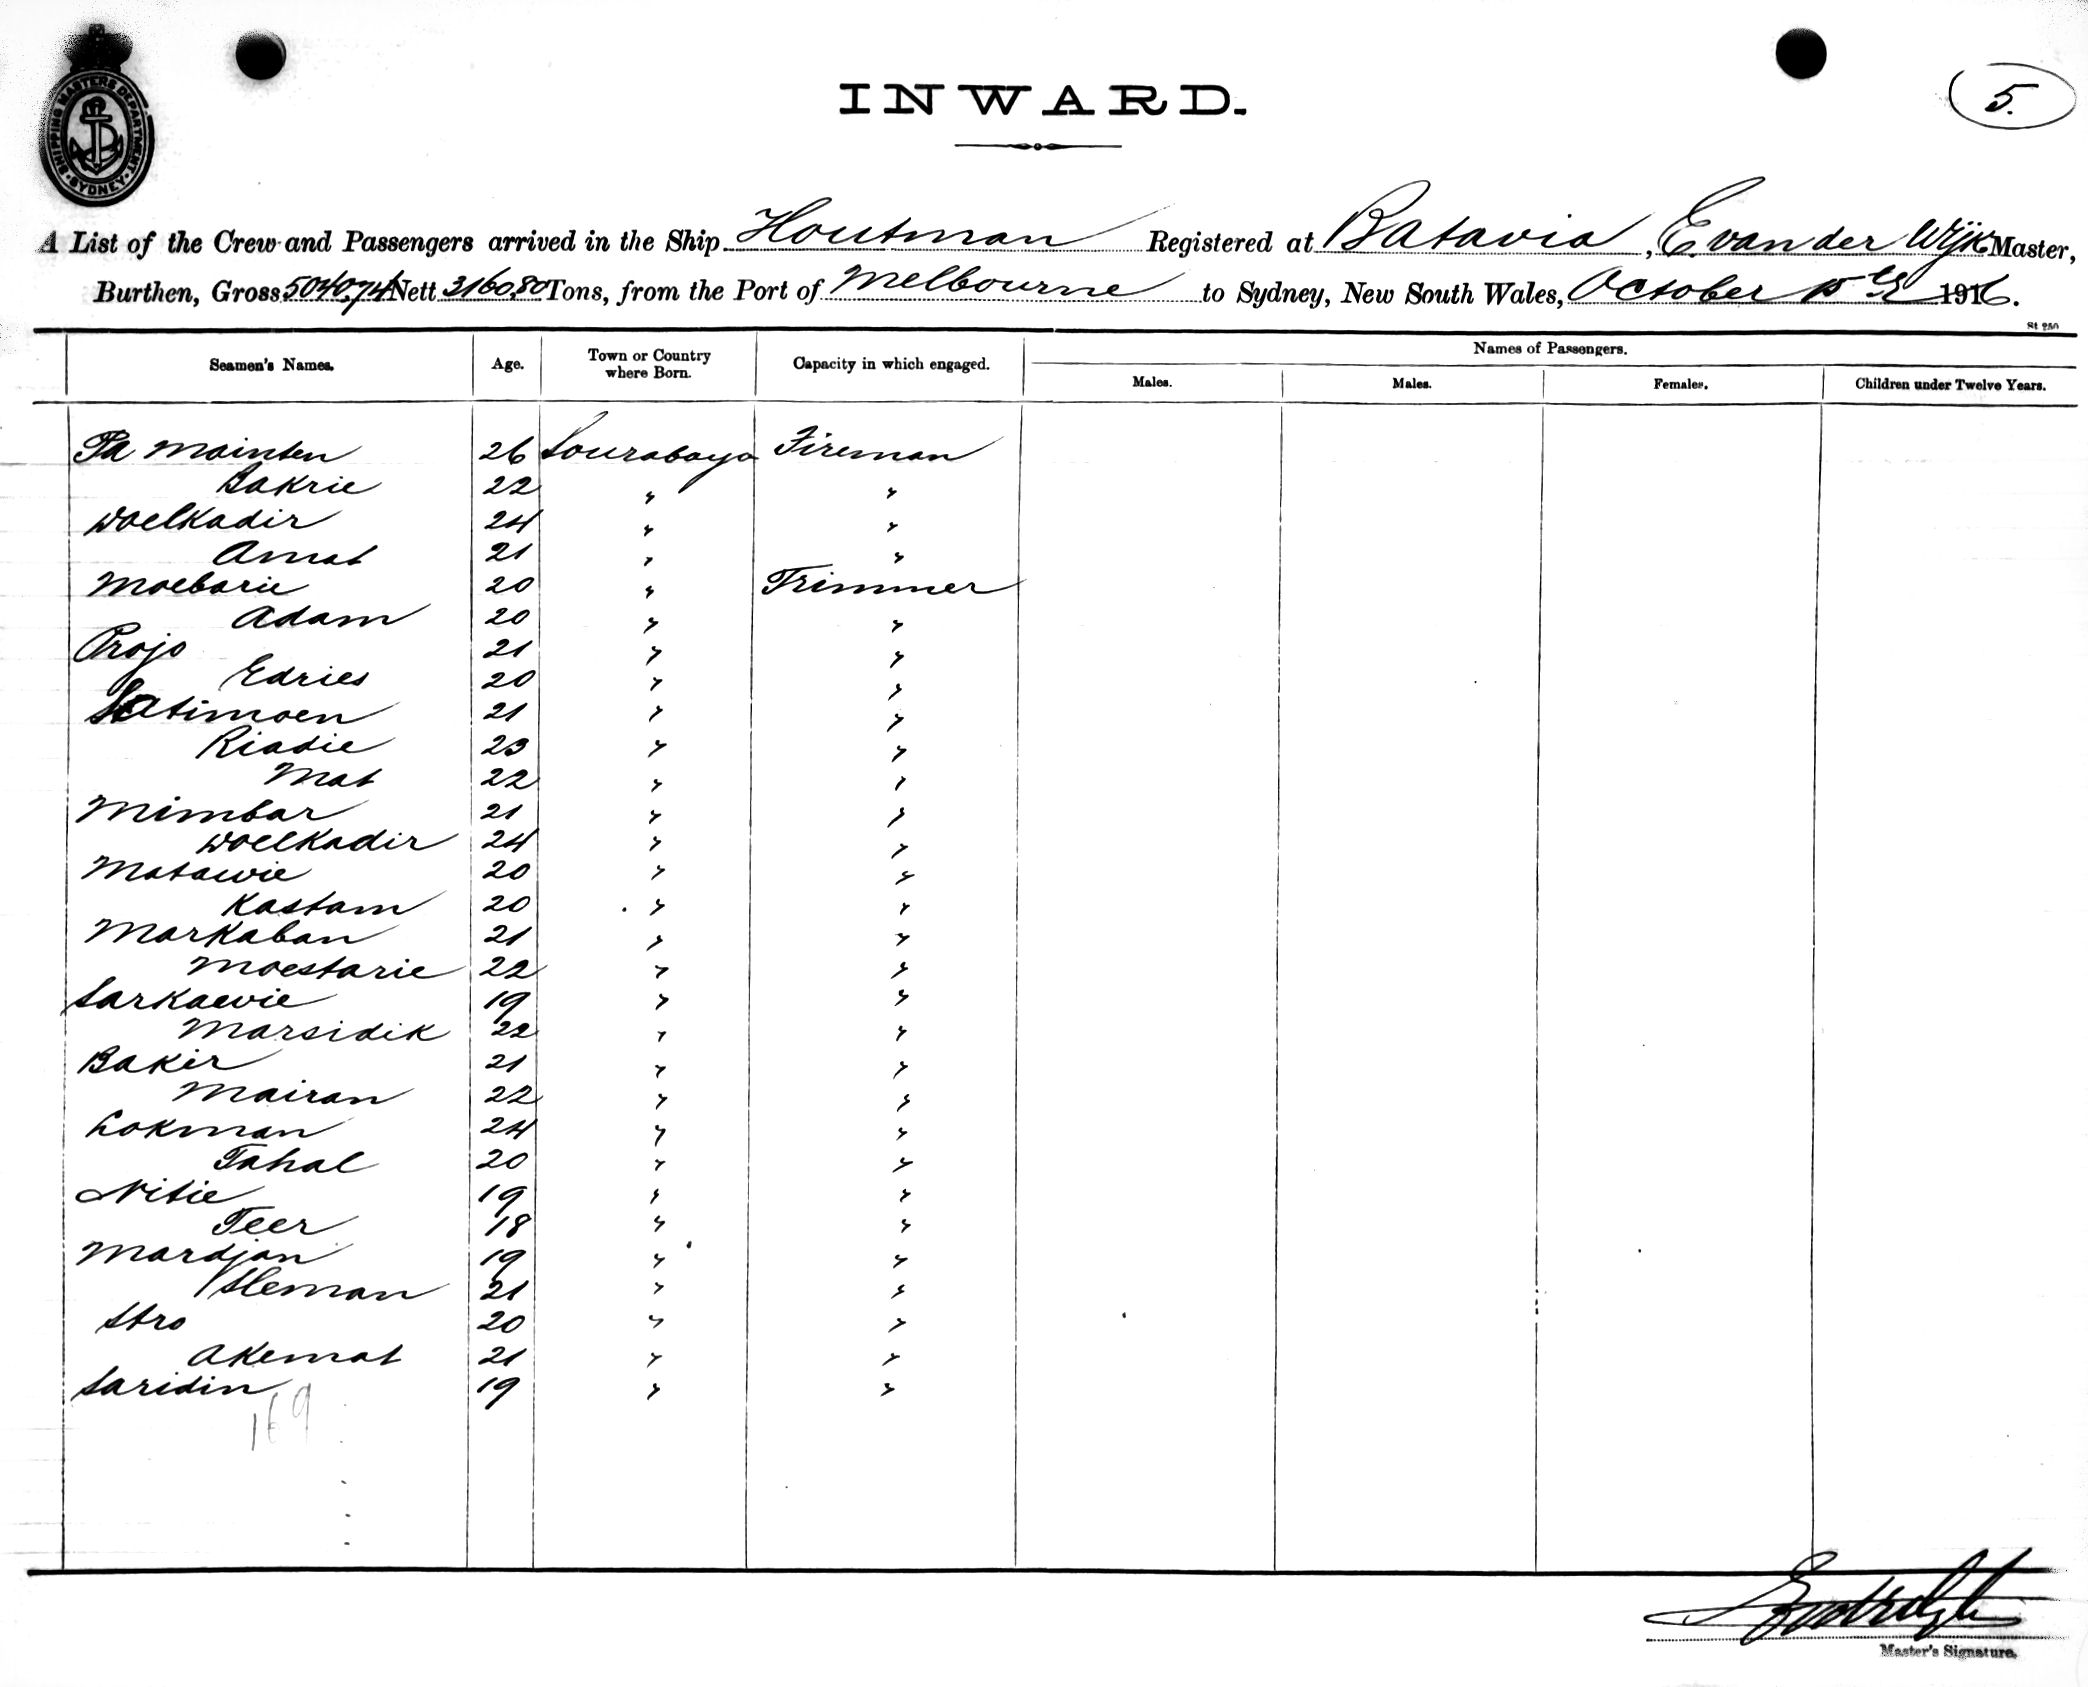 SHIPPING MASTERS DEPARTMENT. SYDNEY
5.
INWARD.
A List of the Crew and Passengers arrived in the Ship Houtman Registered at Batavia, E. van der Wijk Master,
Burthen, Gross 5040.74 Nett 3160.80 Tons, from the Port of Melbourne to Sydney, New South Wales, October 15th 1916.
St 250
Seamen's Names. Age. Town or Country where Born. Capacity in which engaged. Names of Passengers.
Males. Males. Females. Children under Twelve Years.
Pa Mainten 26 Sourabaya Fireman
Bakrie 22 " "
Woelkadir 24 " "
Amat 21 " "
Moebarie 20 " Trimmer
Adam 20 " "
Projo 21 " "
Edries 20 " "
Satimoen 21 " "
Riadie 23 " "
Mat 22 " "
Mimbar 21 " "
Woelkadir 24 " "
Matawie 20 " "
Kastam 20 " "
Markaban 21 " "
Moestarie 22 " "
Sarkawie 19 " "
Marsidik 22 " "
Bakir 21 " "
Mairan 22 " "
Lokman 24 " "
Tahal 20 " "
Nitie 19 " "
Teer 18 " "
Mardjan 19 " "
Sleman 21 " "
Stro 20 " "
Akemat 21 " "
Saridin 19 " "
169
Master's Signature.